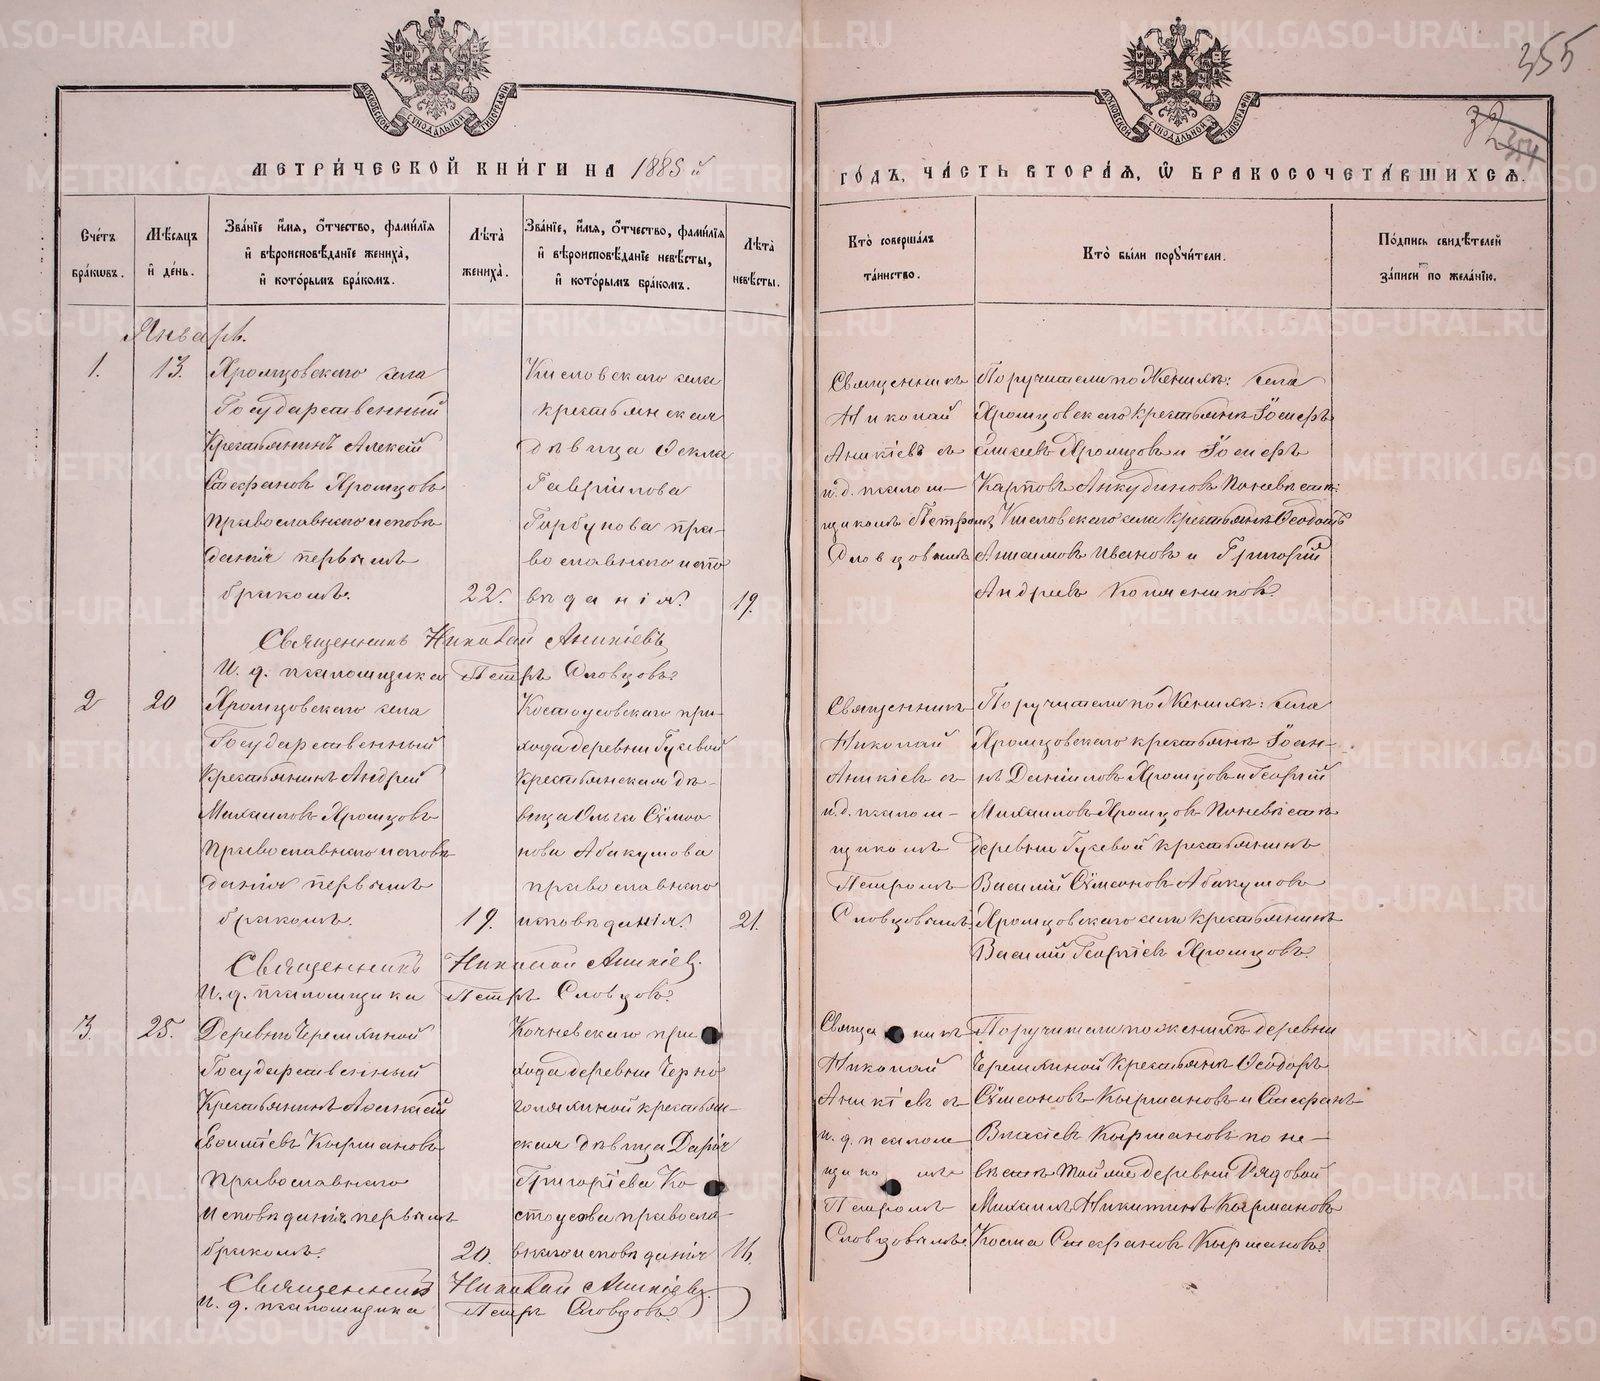 355
32
354
МЕТРИ́ЧЕСКОЙ КНИ́ГИ НА 1885 й
ГО́ДЪ, ЧА́СТЬ ВТОРА́Я, Ѡ БРАКОСОЧЕТА́ВШИХСЯ.
Сче́тъ бра́ковъ.
Мѣ́сяцъ и де́нь.
Зва́нїе, и́мя, о́тчество, фами́лїя
и вѣроисповѣ́данїе жениха̀,
и кото́рымъ бра́комъ.
Лѣта̀ жениха̀.
Зва́нїе, и́мя, о́тчество, фами́лїя
и вѣроисповѣ́данїе невѣ́сты,
и кото́рымъ бра́комъ.
Лѣта̀ невѣ́сты.
Кто̀ соверша́лъ та́инство.
Кто̀ бы́ли поручи́тели.
По́дпись свидѣ́телей
за́писи по жела́нїю.
Январь.
1.
13.
Хромцовскаго села
Государственный
Крестьянинъ Алексѣй
Стефановъ Хромцовъ
Православнаго исповѣ
данія первымъ
бракомъ.
22.
Кисловскаго села
крестьянская
дѣвица Ѳекла
Гавріилова
Горбунова пра-
вославнаго испо
вѣданія.
19.
Священникъ
Николай
Аникіевъ съ
и.д. псалом-
щикомъ Петромъ
Словцовымъ
Поручители по Женихѣ: села
Хромцовскаго Крестьяне Іосифъ
Елисеевъ Хромцовъ и Іосифъ
Карповъ Анкудиновъ По невѣстѣ:
Кисловскаго села Крестьяне Ѳеодотъ
Анисимовъ Ивановъ и Григорій
Андреевъ Колясниковъ
Священникъ Николай Аникіевъ
И. д. псаломщика Петръ Словцовъ.
2
20
Хромцовскаго села
Государственный
Крестьянинъ Андрей
Михаиловъ Хромцовъ
Православнаго исповѣ
данія первымъ
бракомъ.
19.
Костоусовскаго при-
хода деревни Гуževой
Крестьянская дѣ-
вица Ольга Сѵмео
нова Абакумова
православнаго
исповѣданія.
21.
Священникъ
Николай
Аникіевъ съ
и.д. псалом-
щикомъ
Петромъ
Словцовымъ
Поручители по Женихѣ: села
Хромцовскаго крестьяне Іоан-
нъ Даніиловъ Хромцовъ и Георгій
Михаиловъ Хромцовъ По невѣстѣ
Василій Сѵмеоновъ Абакумовъ
Хромцовскаго села Крестьянинъ
Василій Георгіевъ Хромцовъ.
Священникъ Николай Аникіевъ.
И. д. псаломщика Петръ Словцовъ.
3.
25.
Государственный
Крестьянинъ
Кырчановъ
Православнаго
Исповѣданія первымъ
бракомъ.
20.
Кочневскаго при
хода деревни Черно
крестьян-
ская дѣвица Дарія
Григоріева Ко
стоусова правосла-
внаго исповѣданія
16.
Николай
Аникіевъ съ
и. д. псалом-
щикомъ
Петромъ
Словцовымъ
Поручители по женихѣ деревни
Крестьяне Ѳеодоръ
Сѵмеоновъ Кырчановъ и Стефанъ
Власіевъ Кырчановъ по не-
вѣстѣ той же деревни Рядовой
Михаилъ Никитинъ Кырчановъ
Косма Стефановъ Кырчановъ.
Священникъ Николай Аникіевъ.
И. д. псаломщика Петръ Словцовъ.